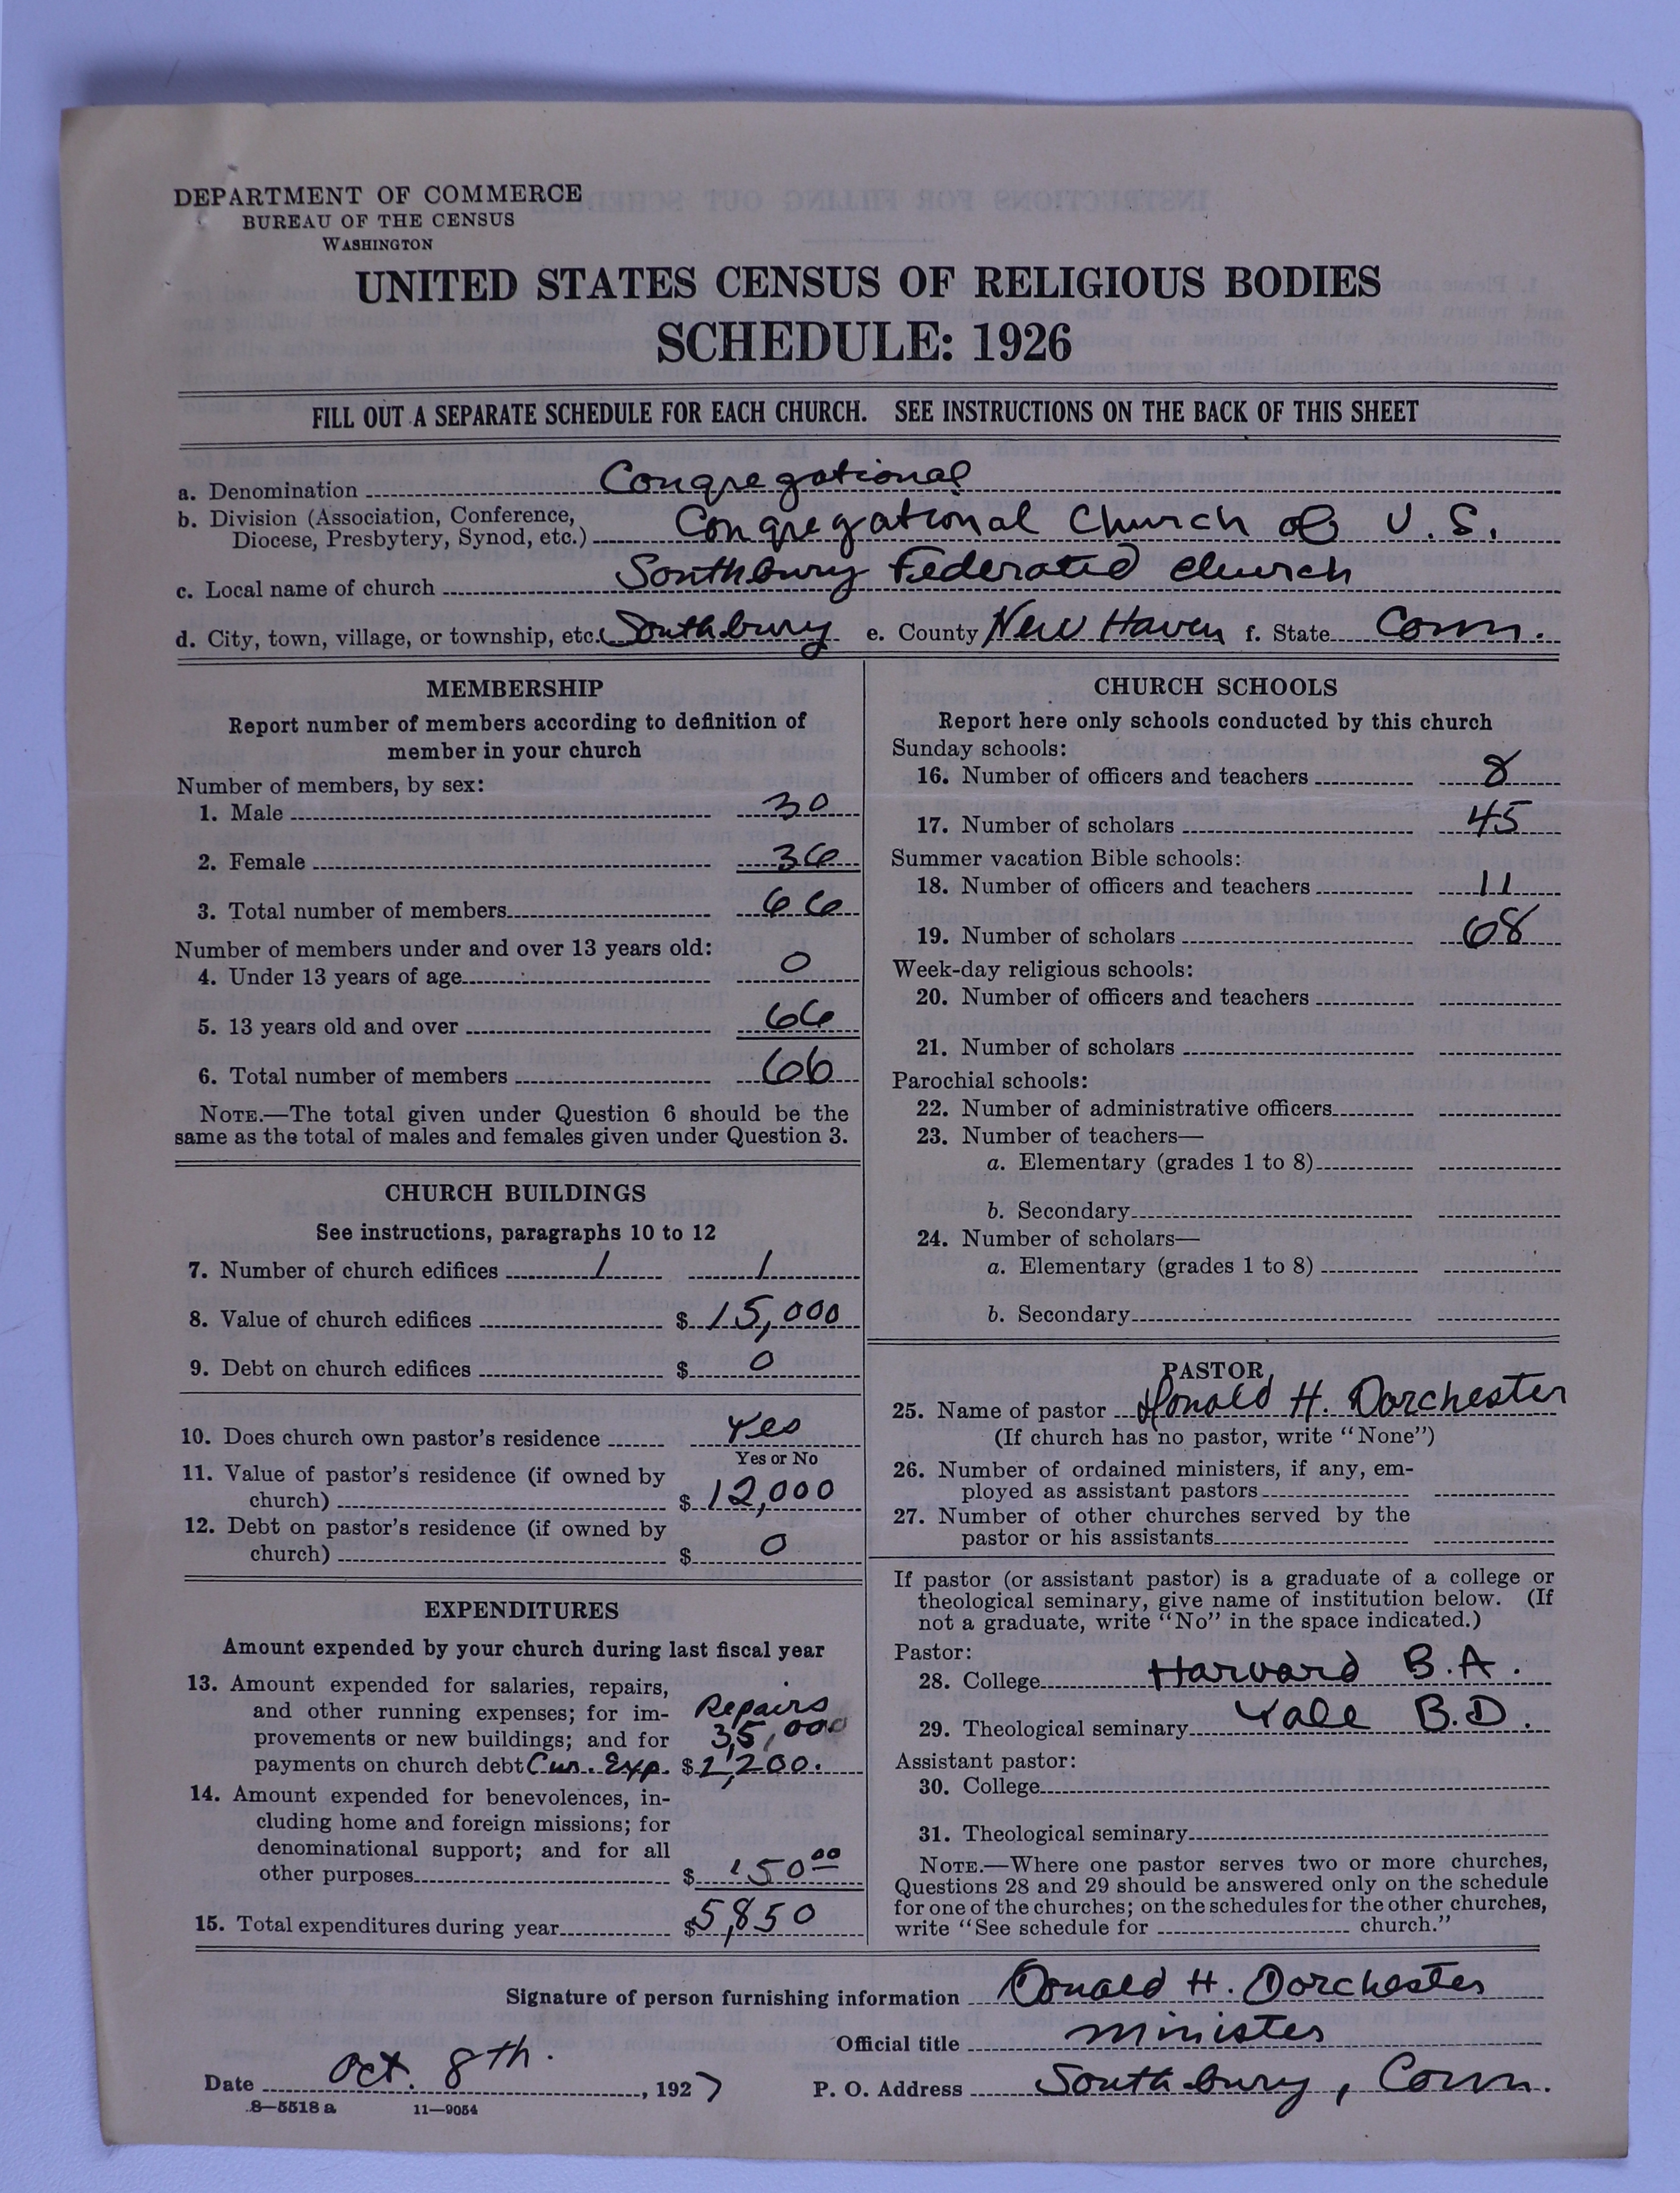 DEPARTMENT OF COMMERCE
BUREAU OF THE CENSUS
WASHINGTON
UNITED STATES CENSUS OF RELIGIOUS BODIES
SCHEDULE: 1926
FILL OUT A SEPARATE SCHEDULE FOR EACH CHURCH. SEE INSTRUCTIONS ON THE BACK OF THIS SHEET
a. Denomination Congregational
b. Division (Association, Conference,
Diocese, Presbytery, Synod, etc.) Congregational Church of U. S.
c. Local name of church Southbury Federated Church
d. City, town, village, or township, etc. Southbury e. County New Haven f. State Conn.
MEMBERSHIP
Report number of members according to definition of
member in your church
Number of members, by sex:
1. Male 30
2. Female 36
3. Total number of members 66
Number of members under and over 13 years old:
4. Under 13 years of age 0
5. 13 years old and over 66
6. Total number of members 66
NOTE.—The total given under Question 6 should be the
same as the total of males and females given under Question 3.
CHURCH BUILDINGS
See instructions, paragraphs 10 to 12
7. Number of church edifices 1 1
8. Value of church edifices $ 15,000
9. Debt on church edifices $ 0
10. Does church own pastor's residence Yes
Yes or No
11. Value of pastor's residence (if owned by
church) $ 12,000
12. Debt on pastor's residence (if owned by
church) $ 0
EXPENDITURES
Amount expended by your church during last fiscal year
13. Amount expended for salaries, repairs,
and other running expenses; for im- Repairs
provements or new buildings; and for 35,000
payments on church debt Cur. Exp. $ 2,200.
14. Amount expended for benevolences, in-
cluding home and foreign missions; for
denominational support; and for all
other purposes $ 150 00
15. Total expenditures during year $ 5,850
CHURCH SCHOOLS
Report here only schools conducted by this church
Sunday schools:
16. Number of officers and teachers 8
17. Number of scholars 45
Summer vacation Bible schools:
18. Number of officers and teachers 11
19. Number of scholars 68
Week-day religious schools:
20. Number of officers and teachers
21. Number of scholars
Parochial schools:
22. Number of administrative officers
23. Number of teachers—
a. Elementary (grades 1 to 8)
b. Secondary
24. Number of scholars—
a. Elementary (grades 1 to 8)
b. Secondary
PASTOR
25. Name of pastor Donald H. Dorchester
(If church has no pastor, write "None")
26. Number of ordained ministers, if any, em-
ployed as assistant pastors
27. Number of other churches served by the
pastor or his assistants
If pastor (or assistant pastor) is a graduate of a college or
theological seminary, give name of institution below. (If
not a graduate, write "No" in the space indicated.)
Pastor:
28. College Harvard B.A.
29. Theological seminary Yale B.D.
Assistant pastor:
30. College
31. Theological seminary
NOTE.—Where one pastor serves two or more churches,
Questions 28 and 29 should be answered only on the schedule
for one of the churches; on the schedules for the other churches,
write "See schedule for church."
Signature of person furnishing information Donald H. Dorchester
Official title minister
Date Oct. 8th. , 1927 P. O. Address Southbury, Conn.
8—5518 a 11—9054